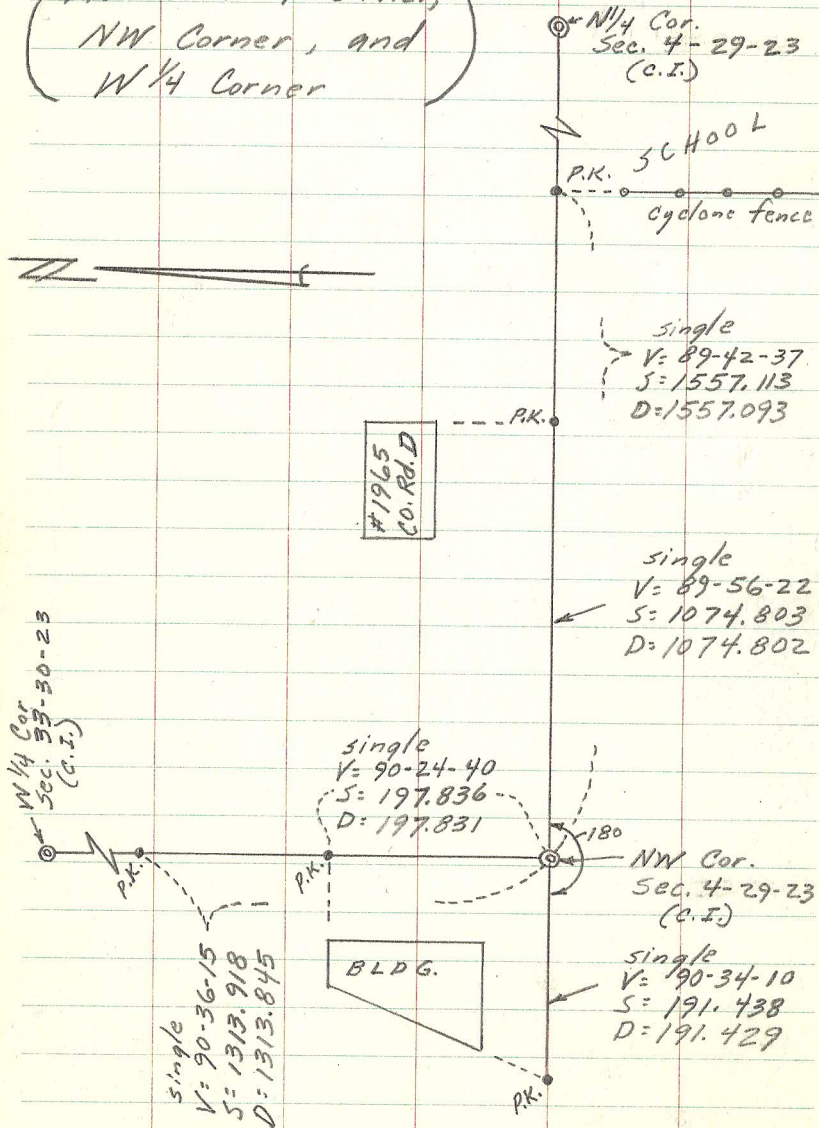 NW Corner, and
W 1/4 Corner
N 1/4 Cor.
Sec. 4-29-23
(C.I.)
SCHOOL
P.K.
cyclone fence
single
V= 89-42-37
S= 1557.113
D=1557.093
P.K.
#1965
CO. Rd. D
single
V= 89-56-22
S= 1074.803
D= 1074.802
W 1/4 Cor
Sec. 33-30-23
(C.I.)
single
V= 90-24-40
S= 197.836
D= 197.831
180
P.K.
P.K.
NW Cor.
Sec. 4-29-23
(C.I.)
BLDG.
single
V= 90-36-15
S= 1313.918
D= 1313.845
single
V= 90-34-10
S= 191.438
D= 191.429
P.K.